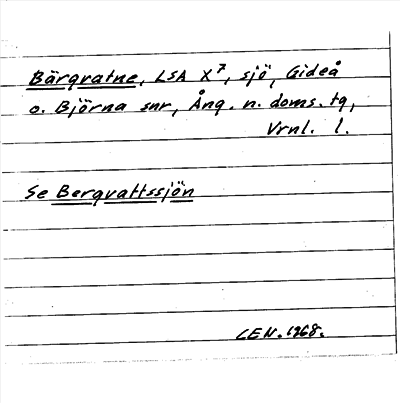 Bärgvatne, LSA X7, sjö, Gideå
o. Björna snr, Ång. n. doms. tg,
Vrnl. l.
Se Bergvattssjön
LEN. 1968.